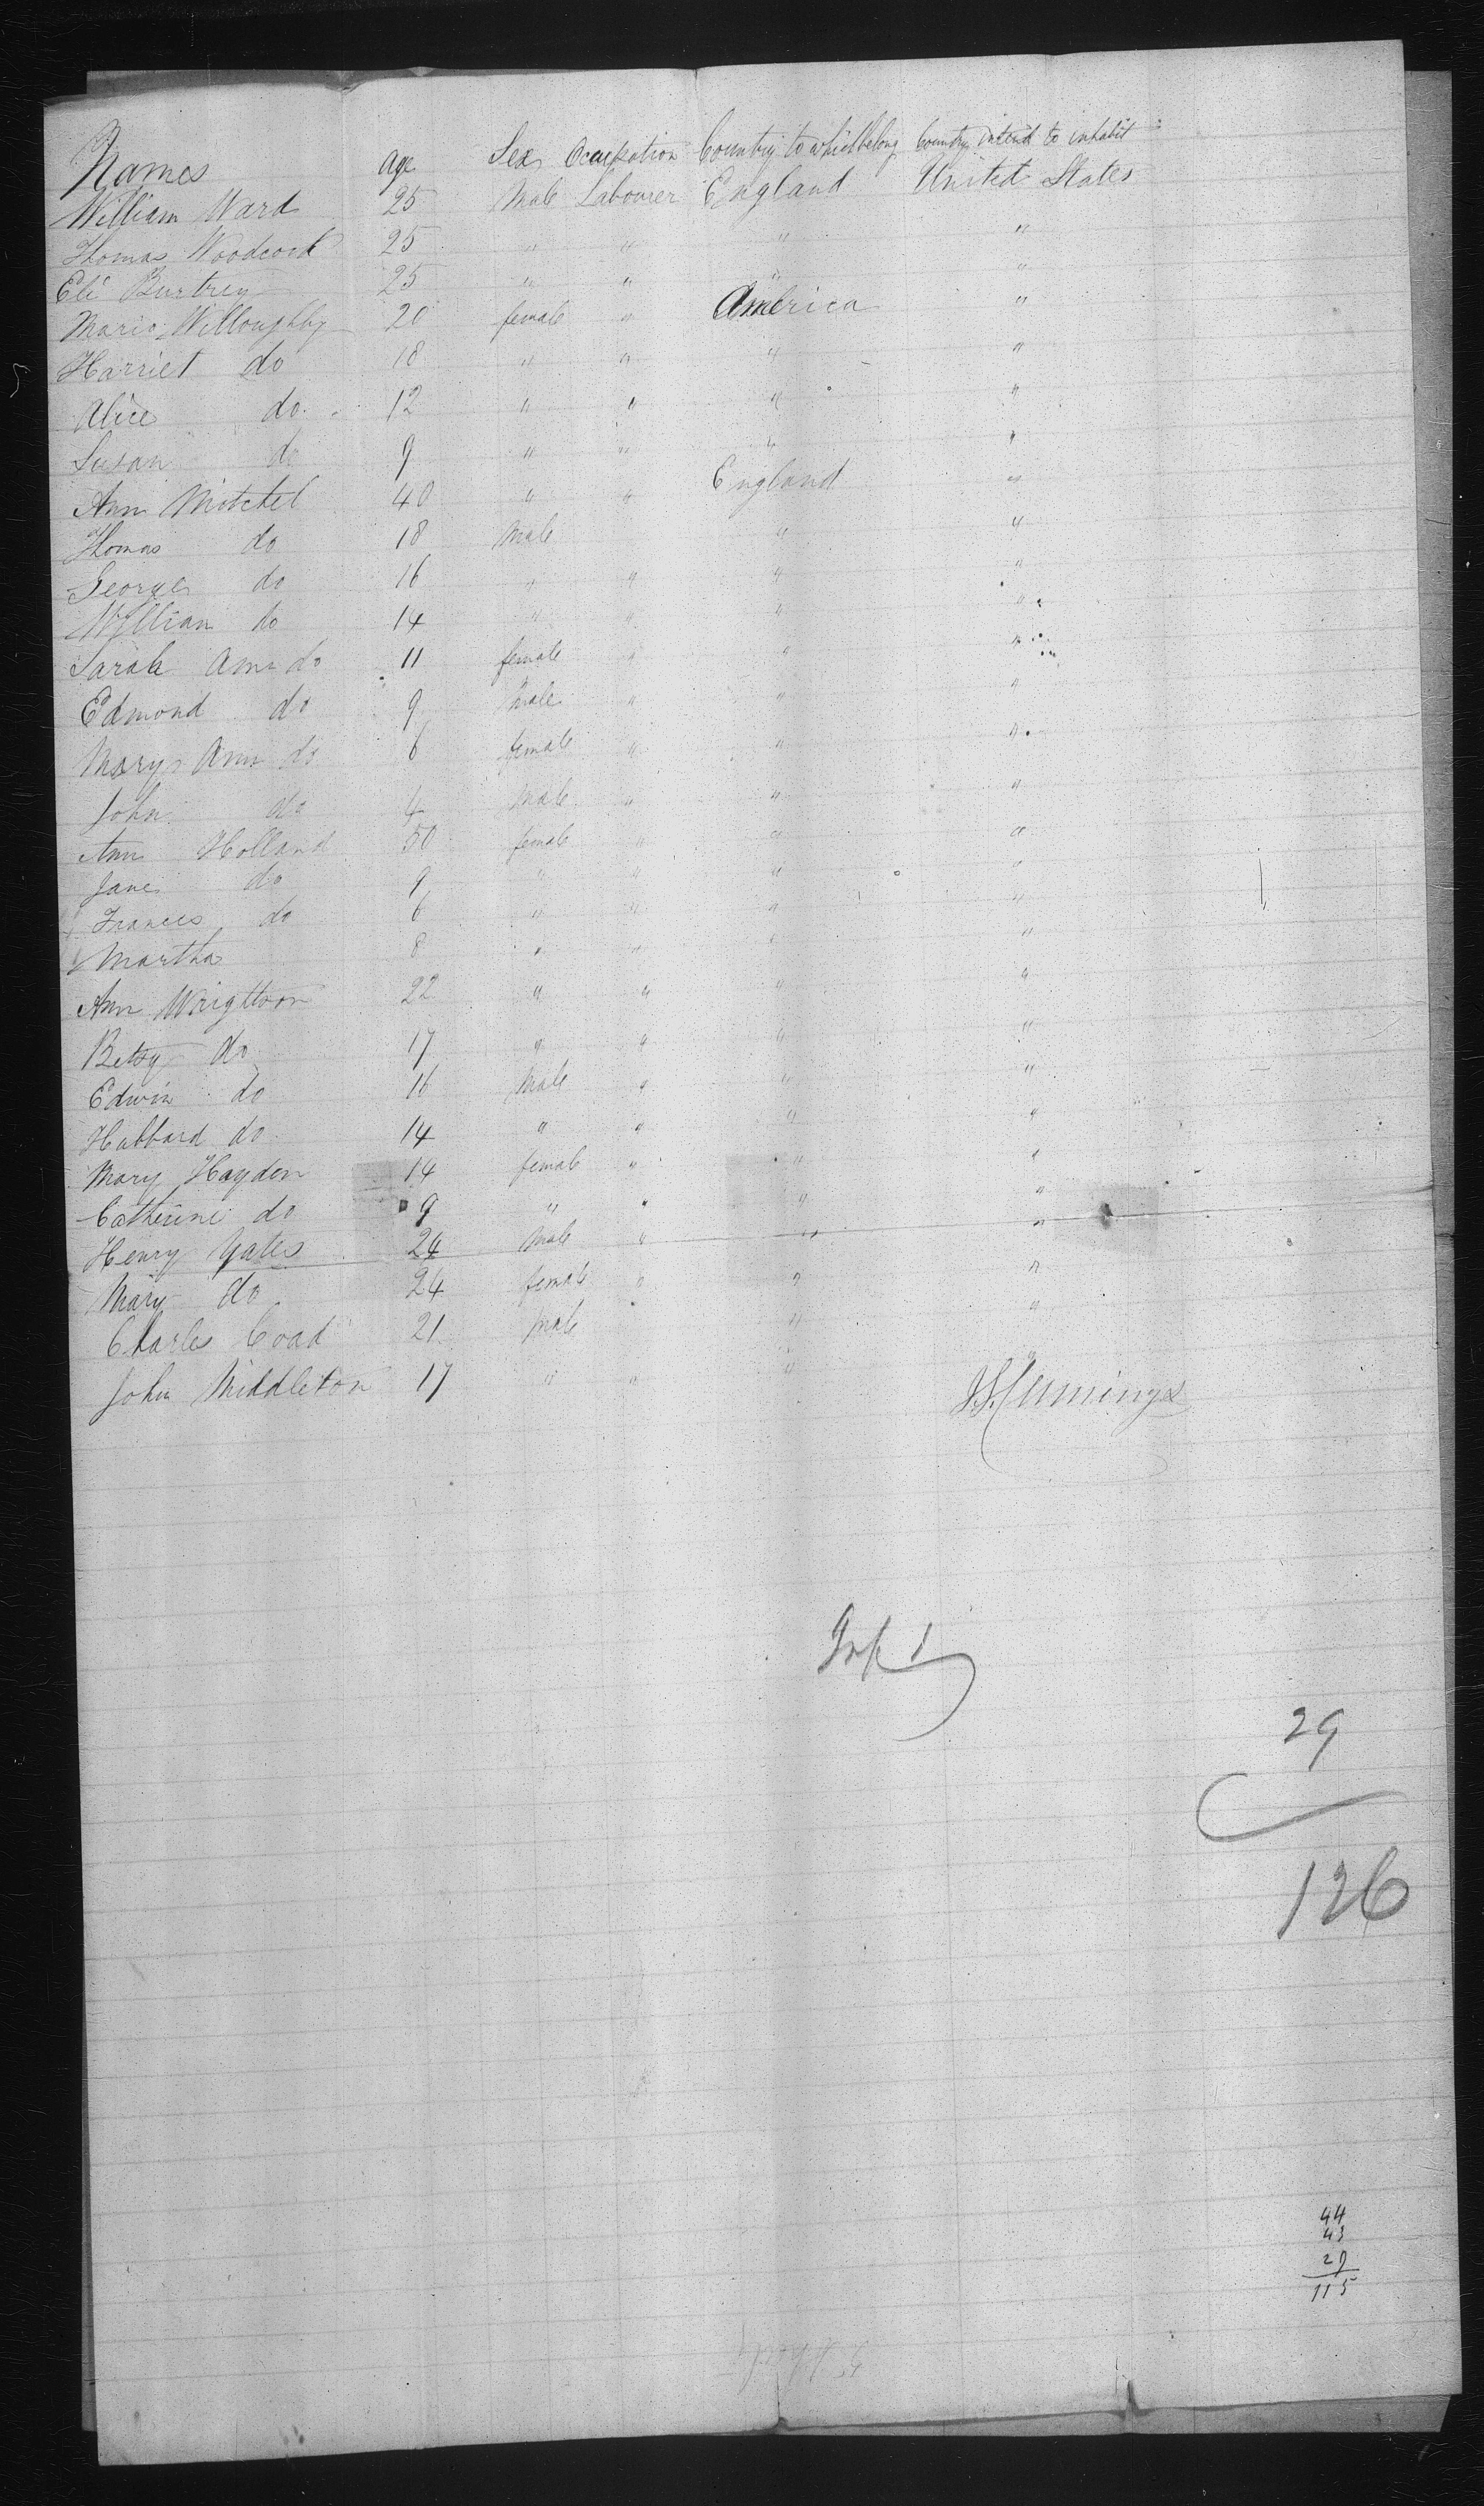 Names Age Sex Occupation Country to which belong Country intend to inhabit
William Ward 25 Male Labourer England United States
Thomas Woodcock 25 " " " "
Eli Burtrey 25 " " " "
Maria Willoughby 20 female " America "
Harriet do 18 " " " "
Alice do 12 " " " "
Susan do 9 " " " "
Ann Mitchel 40 " " England "
Thomas do 18 Male " "
George do 16 " " " "
William do 14 " " " "
Sarah Ann do 11 female " " "
Edmond do 9 Male " " "
Mary Ann do 6 female " " "
John do 4 Male " " "
Ann Holland 50 female " " "
Jane do 9 " " " "
Frances do 6 " " " "
Martha 8 " " " "
Ann Wrightson 22 " " " "
Betsy do 17 " " " "
Edwin do 16 Male " " "
Hubbard do 14 " " " "
Mary Hayden 14 female " " "
Catherine do 9 " " " "
Henry Yates 24 Male " " "
Mary do 24 female " " "
Charles Coad 21 Male " "
John Middleton 17 " " " "
29
126
44
43
29
115